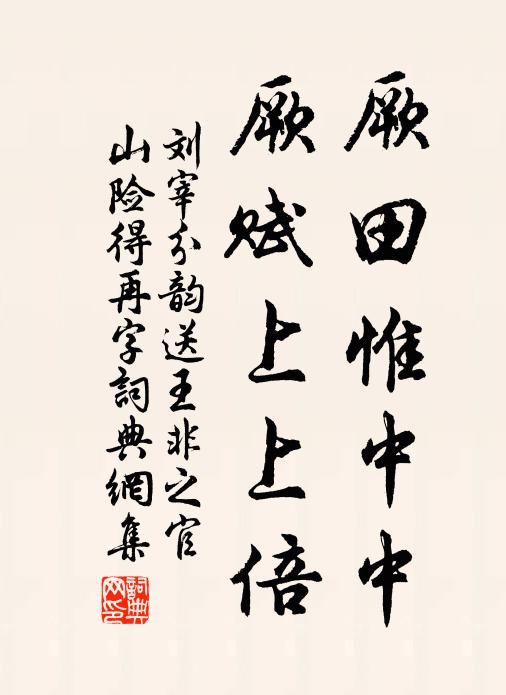 厥田惟中中
厥赋上上倍
刘宰分韵送王非之官
山险得再字詞典網集
詞典网印